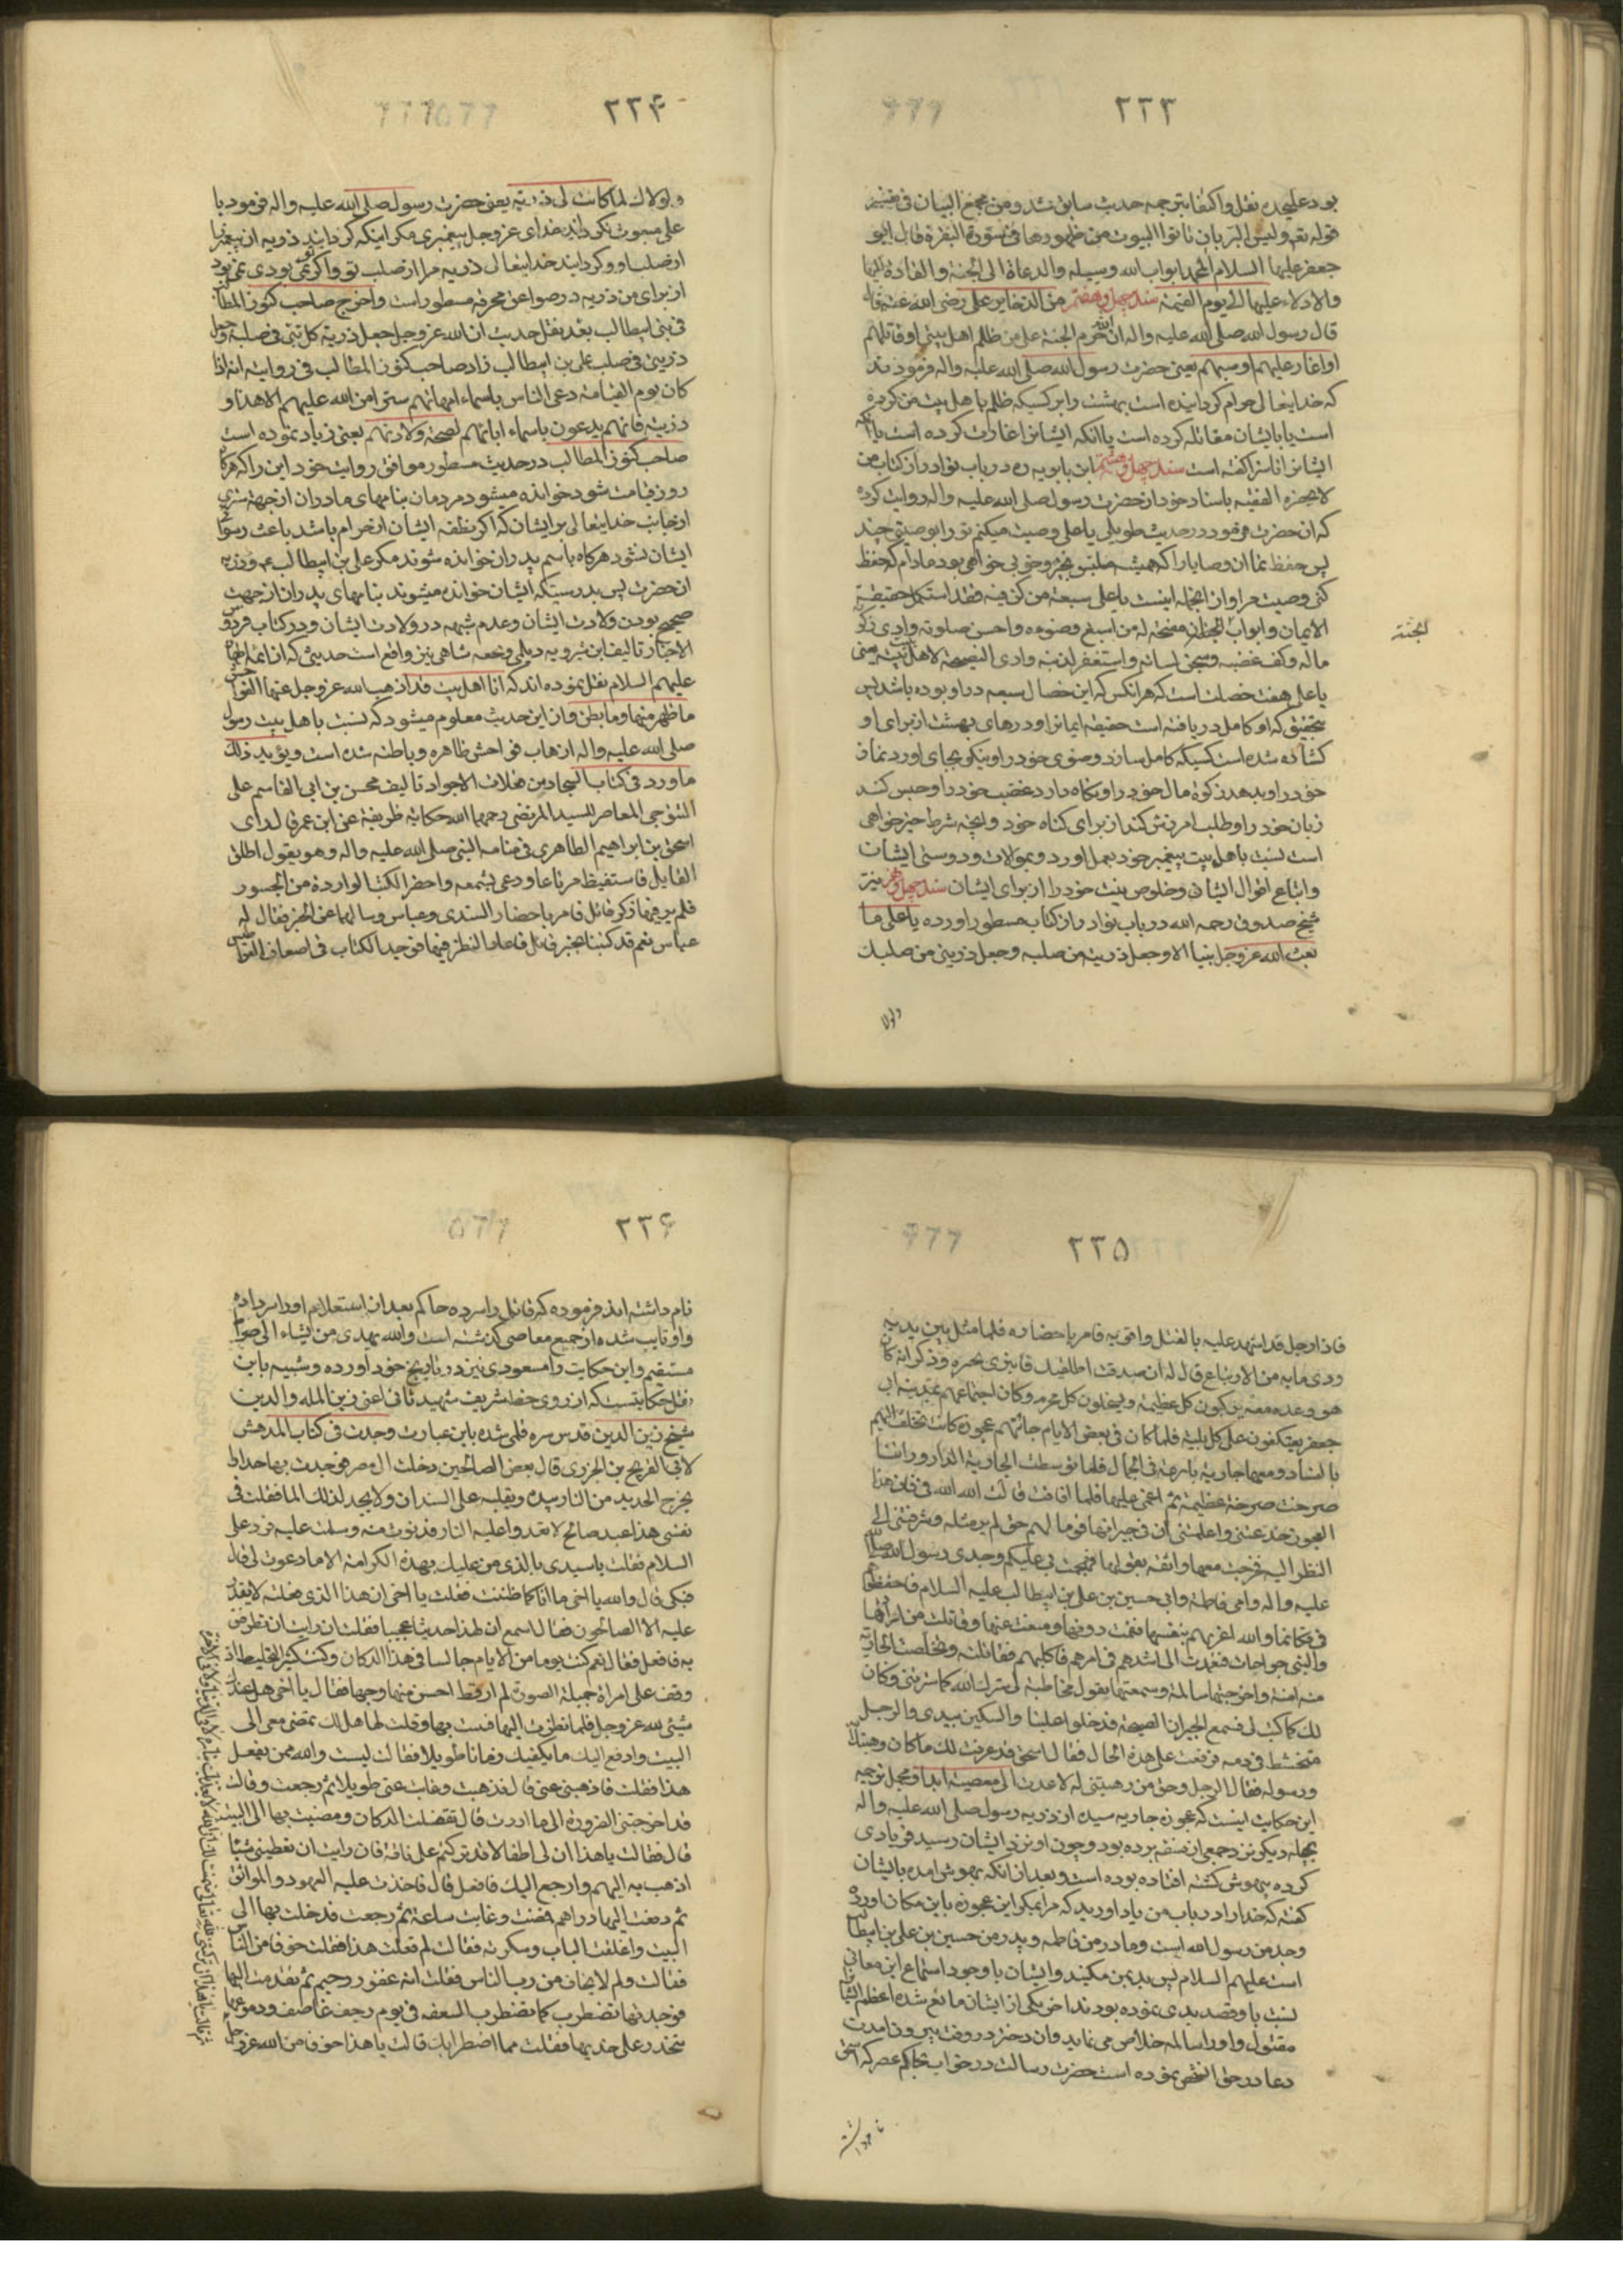 ۲۲۳
بود علیحده نقل و اکتفا بترجمه حدیث سابق شد و من مجمع البیان فی تفسیر
قوله تعه ولیس البرّ بان تاتوا البیوت من ظهورها فی سورة البقرة قال ابو
جعفر علیها السلام ال محمد ابواب الله وسبیله والدعاة الی الجنة والقادة الیها
والادلاء علیها الی یوم القیمة سند چهل و هفتم من الذخایر عن علی رضی الله عنه قال
قال رسول الله صلی الله علیه واله ان الله حرم الجنة علی من ظلم اهل بیتی او قاتلهم
او اغار علیهم او سبهم یعنی حضرت رسول الله صلی الله علیه واله فرمودند
که خدایتعالی حرام کردانیده است بهشت را بر کسیکه ظلم باهل بیت من کرده
است یا باایشان مقاتله کرده است یا انکه ایشانرا غارت کرده است یا انکه
ایشانرا ناسزا کفته است سند چهل و هشتم ابن بابویه ره در باب نوادر از کتاب من
لا یحضره الفقیه باسناد خود از حضرت رسول صلی الله علیه واله روایت کرده
که ان حضرت می فرمود در حدیث طویلی یا علی وصیت میکنم تو را بوصیتی چند
پس حفظ نما ان وصایا را که همیشه متلبس بخیر و خوبی خواهی بود مادام که حفظ
کنی وصیت مرا و از انجمله اینست یا علی سبعة من کن فیه فقد استکمل حقیقة
الایمان وابواب الجنان مفتحة له من اسبغ وضوءه واحسن صلوته وادی زکوة
ماله وکف غضبه وسجن لسانه واستغفر لذنبه وادی النصیحة لاهل بیت نبیه یعنی
یا علی هفت خصلت است که هر انکس که این خصال سبعه در او بوده باشد پس
بتحقیق که او کامل دریافته است حقیقة ایمانرا و درهای بهشت از برای او
کشاده شده است کسیکه کامل سازد وضوی خود را و نیکو بجای اورد نماز
خود را و بدهد زکوة مال خود را و نکاه دارد غضب خود را و حبس کند
زبان خود را و طلب امرزش کند از برای کناه خود و انچه شرط خیرخواهی
است نسبت باهل بیت پیغمبر خود بعمل اورد و بموالات و دوستی ایشان
و اتباع اقوال ایشان و خلوص نیت خود را از برای ایشان سند چهل و نهم نیز
شیخ صدوق رحمه الله در باب نوادر از کتاب مسطور اورده یا علی ما
بعث الله عز وجل نبیا الا وجعل ذریته من صلبه وجعل ذریتی من صلبک
ولولا
الجنة
۲۲۴
ولولاک لما کانت لی ذریة یعنی حضرت رسول صلی الله علیه واله فرمود یا
علی مبعوث نکردانید خدای عز وجل پیغمبری مکر اینکه کردانید ذریه ان پیغمبر را
از صلب او و کردانید خدایتعالی ذریه مرا از صلب تو و اکر تو نمی بودی نمی بود
از برای من ذریه در صواعق محرقه مسطور است و اخرج صاحب کنوز المطالب
فی بنی ابیطالب بعد نقل حدیث ان الله عز وجل جعل ذریة کل نبی فی صلبه وجعل
ذریتی فی صلب علی بن ابیطالب زاد صاحب کنوز المطالب فی روایته انه اذا
کان یوم القیامة دعی الناس باسماء امهاتهم سترا من الله علیهم الا هذا و
ذریته فانهم یدعون باسماء ابائهم لصحة ولادتهم یعنی زیاد نموده است
صاحب کنوز المطالب در حدیث مسطور موافق روایت خود این را که هرکاه
روز قیامت شود خوانده میشود مردمان بنامهای مادران از جهة ستری
از جانب خدایتعالی بر ایشان که اکر نطفه ایشان از حرام باشد باعث رسوائی
ایشان نشود هرکاه باسم پدران خوانده شوند مکر علی بن ابیطالب ع و ذریه
ان حضرت پس بدرستیکه ایشان خوانده میشوند بنامهای پدران از جهت
صحیح بودن ولادت ایشان و عدم شبهه در ولادت ایشان و در کتاب فردوس
الاخبار تالیف ابن شیرویه دیلمی و نخعه شاهی نیز واقع است حدیثی که از ائمه اطهار
علیهم السلام نقل نموده اند که انا اهل بیت قد اذهب الله عز وجل عنها الفواحش
ما ظهر منها وما بطن و از این حدیث معلوم میشود که نسبت باهل بیت رسول
صلی الله علیه واله اذهاب فواحش ظاهره و باطنه شده است ویؤید ذلک
ما ورد فی کتاب المستجاد من فعلات الاجواد تالیف محسن بن ابی القاسم علی
التنوخی المعاصر للسید المرتضی رحمهما الله حکایة ظریفة عن ابن عمر قال رای
اسحق بن ابراهیم الطاهری فی منامه النبی صلی الله علیه واله وهو یقول اطلق
القاتل فاستیقظ مرتاعا ودعی بشمعه واحضر الکتب الواردة من الجسور
فلم یر فیها ذکر قاتل فامر باحضار السندی وعباس وسالهما عن الخبر فقال له
عباس نعم قد کتبنا بخبر قاتل فاعاد النظر فیها فوجد الکتاب فی اضعاف القراطیس
۲۲۵
فاذا رجل قد استهد علیه بالقتل واقر به فامر باحضاره فلما مثل بین یدیه
ورای ما به من الارتیاع قال له ان صدقت اطلقتک فانبری یخبره وذکر انه کان
هو وعده معه یرتکبون کل عظیمة ویفعلون کل محرم وکان اجتماعهم بمدینة ابی
جعفر یعتکفون علی کل بلیة فلما کان فی بعض الایام جائتهم عجوزة کانت تختلف الیهم
بالفساد ومعها جاریة بارعة فی الجمال فلما توسطت الجاریة الدار وراتنا
صرخت صرخة عظیمة ثم اغمی علیها فلما افاقت قالت الله الله فی فان هذا
العجوز خدعتنی واعلمتنی ان فی جیرانها قوما لهم حق لم یر مثله وشوقتنی الی
النظر الیه فخرجت معها واثقة بقولها فهجمت بی علیکم وجدی رسول الله صلی الله
علیه واله وامی فاطمة وابی حسین بن علی بن ابیطالب علیه السلام فاحفظوهم
فی فکانما والله اغریهم بنفسها فقمت دونها ومنعت عنها وقاتلت من ارادها
والتنی جراحات فعمدت الی اشدهم فی امرهم فاکلبهم فقاتلته وتخلصت الجاریة
منه امنة واخرجتها سالمة وسمعتها یقول مخاطبة لی سترک الله کما سترتنی وکان
لک کما کنت لی فسمع الجیران الضجة فدخلوا علینا والسکین بیدی والرجل
متخشط فی دمه فرفعت علی هذه الحال فقال اسحق قد عرفت لک ما کان وهبتک لله
ورسوله فقال الرجل وحق من وهبتنی له لا عدت الی معصیة ابدا و محمل ترجمه
این حکایت اینست که عجوزه جاریه سیده از ذریه رسول صلی الله علیه واله
بحیله دیکر نزد جمعی از فسقه برده بود و چون او نزد ایشان رسید فریادی
کرده بیهوش کشته افتاده بوده است و بعد از انکه بهوش امده بایشان
کفته که خدا را در باب من یاد اورید که مرا بمکر این عجوزه باین مکان اورده
وجد من رسول الله است و مادر من فاطمه و پدر من حسین بن علی بن ابیطالب
است علیهم السلام پس بدی بمن مکنید و ایشان با وجود استماع این معانی
نسبت باو قصد بدی نموده بودند اخر یکی از ایشان مانع شده اعظم انها را
مقتول و او را سالمه خلاص می نماید و ان دختر در وقت بیرون امدن
دعا در حق انشخص نموده است حضرت رسالت در خواب بحاکم عصر که اسحق
نام داشته
۲۲۶
نام داشته اند فرموده که قاتل را سر ده حاکم بعد از استعلام او را سر داده
و او تایب شده از جمیع معاصی کذشته است والله یهدی من یشاء الی صراط
مستقیم و این حکایت را مسعودی نیز در تاریخ خود اورده و شبیه باین
نقل حکایتیست که از روی خط شریف شهید ثانی اعنی زین الملة والدین
شیخ زین الدین قدس سره قلمی شده باین عبارت وجدت فی کتاب المدهش
لابی الفرج بن الجوزی قال بعض الصالحین دخلت الی مصر فوجدت بها حدادا
یخرج الحدید من النار بیده ویقلبه علی السندان ولا یجد لذلک الما فقلت فی
نفسی هذا عبد صالح لا تعدو علیه النار فدنوت منه وسلمت علیه فرد علی
السلام فقلت یا سیدی بالذی من علیک بهذه الکرامة الا ما دعوت لی قال
فبکی وقال والله یا اخی ما انا کما ظننت فقلت یا اخی ان هذا الذی فعلته لا یقدر
علیه الا الصالحون فقال اسمع ان لهذا حدیثا عجیبا فقلت ان رایت ان تطرفنی
به فافعل فقال نعم کنت یوما من الایام جالسا فی هذا الدکان وکنت کثیر التخلیط اذ
وقفت علی امراة جمیلة الصورة لم ار قط احسن منها وجها فقال یا اخی هل عندک
شیئی لله عز وجل فلما نظرت الیها فتنت بها وقلت لها هل لک تمضی معی الی
البیت وادفع الیک ما یکفیک زمانا طویلا فقالت لیست والله ممن یفعل
هذا فقلت فاذهبی عنی قال فذهبت وغابت عنی طویلا ثم رجعت وقالت
قد اخرجتنی الضرورة الی ما اردت قال فقفلت الدکان ومضیت بها الی البیت
قال فقالت یا هذا ان لی اطفالا قد ترکتهم علی فاقة فان رایت ان تعطینی شیئا
اذهب به الیهم وارجع الیک فافعل قال فاخذت علیه العهود والمواثق
ثم دفعت الیها دراهم فمضت وغابت ساعة ثم رجعت فدخلت بها الی
البیت واغلقت الباب وسکرته فقالت لم فعلت هذا فقلت خوفا من الناس
فقالت ولم لا تخاف من رب الناس فقلت انه غفور رحیم ثم تقدمت الیها
فوجدتها تضطرب کما تضطرب السعفه فی یوم ریح عاصف ودموعها
تتحدر علی خدیها فقلت مما اضطرابک قالت یا هذا خوفا من الله عز وجل